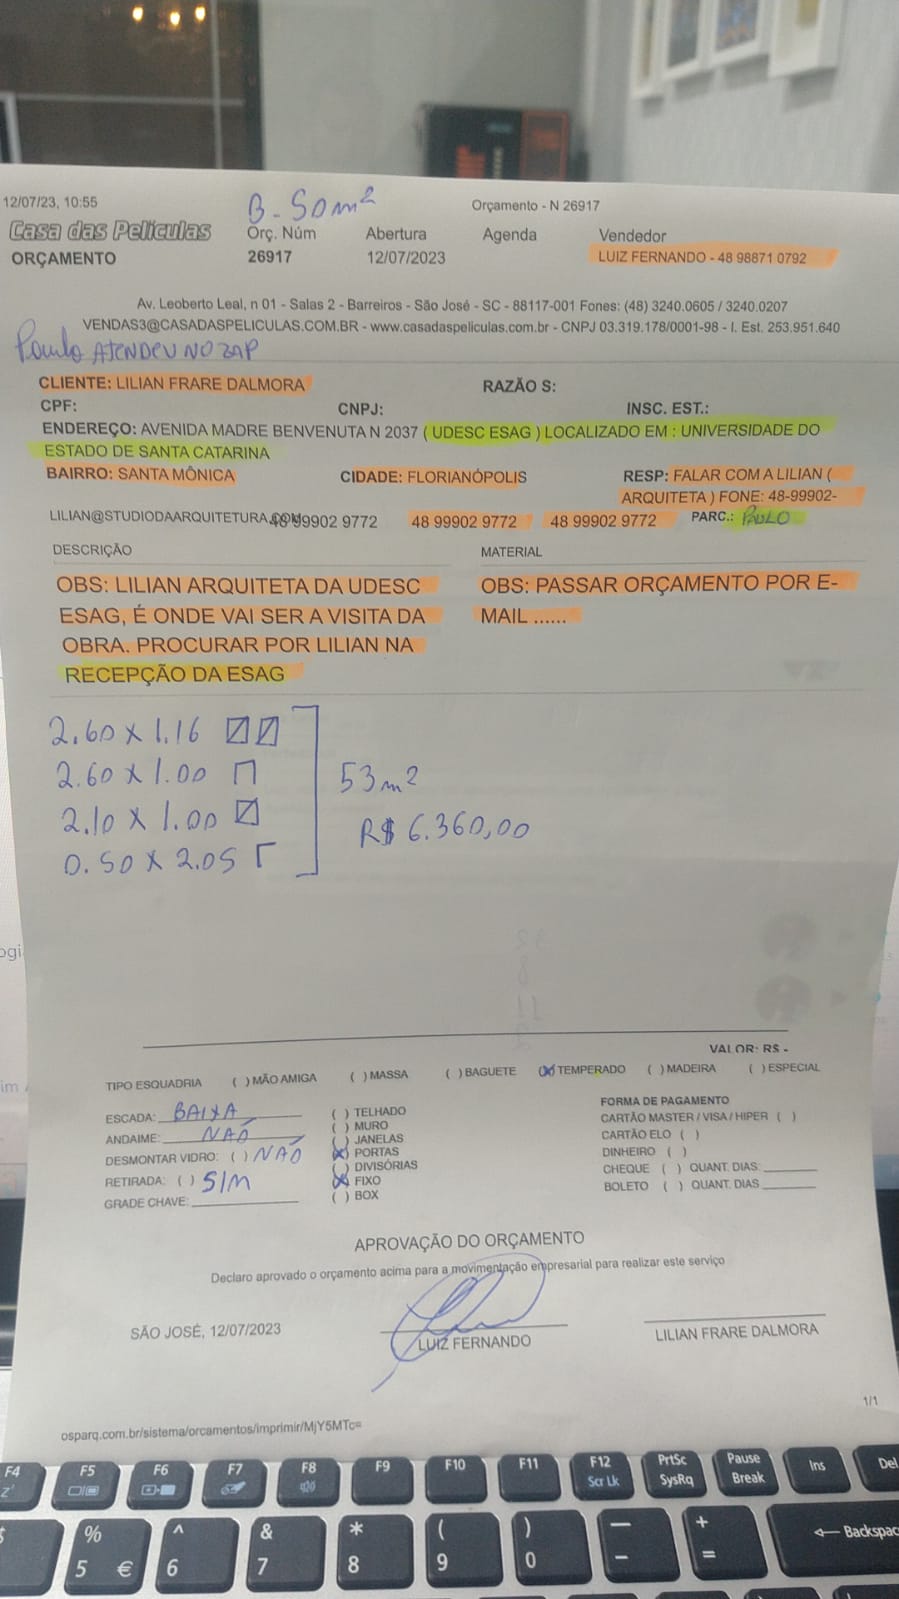 12/07/23, 10:55
B - 50m²
Orçamento - N 26917
Casa das Películas
ORÇAMENTO
Orç. Núm
26917
Abertura
12/07/2023
Agenda
Vendedor
LUIZ FERNANDO - 48 98871 0792
Av. Leoberto Leal, n 01 - Salas 2 - Barreiros - São José - SC - 88117-001 Fones: (48) 3240.0605 / 3240.0207
VENDAS3@CASADASPELICULAS.COM.BR - www.casadaspeliculas.com.br - CNPJ 03.319.178/0001-98 - I. Est. 253.951.640
Paulo ATENDEU NO ZAP
CLIENTE: LILIAN FRARE DALMORA RAZÃO S:
CPF: CNPJ: INSC. EST.:
ENDEREÇO: AVENIDA MADRE BENVENUTA N 2037 ( UDESC ESAG ) LOCALIZADO EM : UNIVERSIDADE DO
ESTADO DE SANTA CATARINA
BAIRRO: SANTA MÔNICA CIDADE: FLORIANÓPOLIS RESP: FALAR COM A LILIAN (
ARQUITETA ) FONE: 48-99902-
LILIAN@STUDIODAARQUITETURA.COM 48 99902 9772 48 99902 9772 48 99902 9772 PARC.: PAULO
DESCRIÇÃO MATERIAL
OBS: LILIAN ARQUITETA DA UDESC
ESAG, É ONDE VAI SER A VISITA DA
OBRA. PROCURAR POR LILIAN NA
RECEPÇÃO DA ESAG
OBS: PASSAR ORÇAMENTO POR E-
MAIL ......
2.60 x 1.16
2.60 x 1.00
2.10 x 1.00
0.50 x 2.05
53m²
R$ 6.360,00
VALOR: R$ -
TIPO ESQUADRIA ( ) MÃO AMIGA ( ) MASSA ( ) BAGUETE (X) TEMPERADO ( ) MADEIRA ( ) ESPECIAL
ESCADA: BAIXA
ANDAIME: NÃO
DESMONTAR VIDRO: ( ) NÃO
RETIRADA: ( ) SIM
GRADE CHAVE:
( ) TELHADO
( ) MURO
( ) JANELAS
(X) PORTAS
( ) DIVISÓRIAS
(X) FIXO
( ) BOX
FORMA DE PAGAMENTO
CARTÃO MASTER / VISA / HIPER ( )
CARTÃO ELO ( )
DINHEIRO ( )
CHEQUE ( ) QUANT. DIAS:
BOLETO ( ) QUANT. DIAS
APROVAÇÃO DO ORÇAMENTO
Declaro aprovado o orçamento acima para a movimentação empresarial para realizar este serviço
SÃO JOSÉ, 12/07/2023
LUIZ FERNANDO
LILIAN FRARE DALMORA
1/1
osparq.com.br/sistema/orcamentos/imprimir/MjY5MTc=
F4 F5 F6 F7 F8 F9 F10 F11 F12 Scr Lk PrtSc SysRq Pause Break Ins Del
% 5 € ^ 6 & 7 * 8 ( 9 ) 0 — - + = Backspac